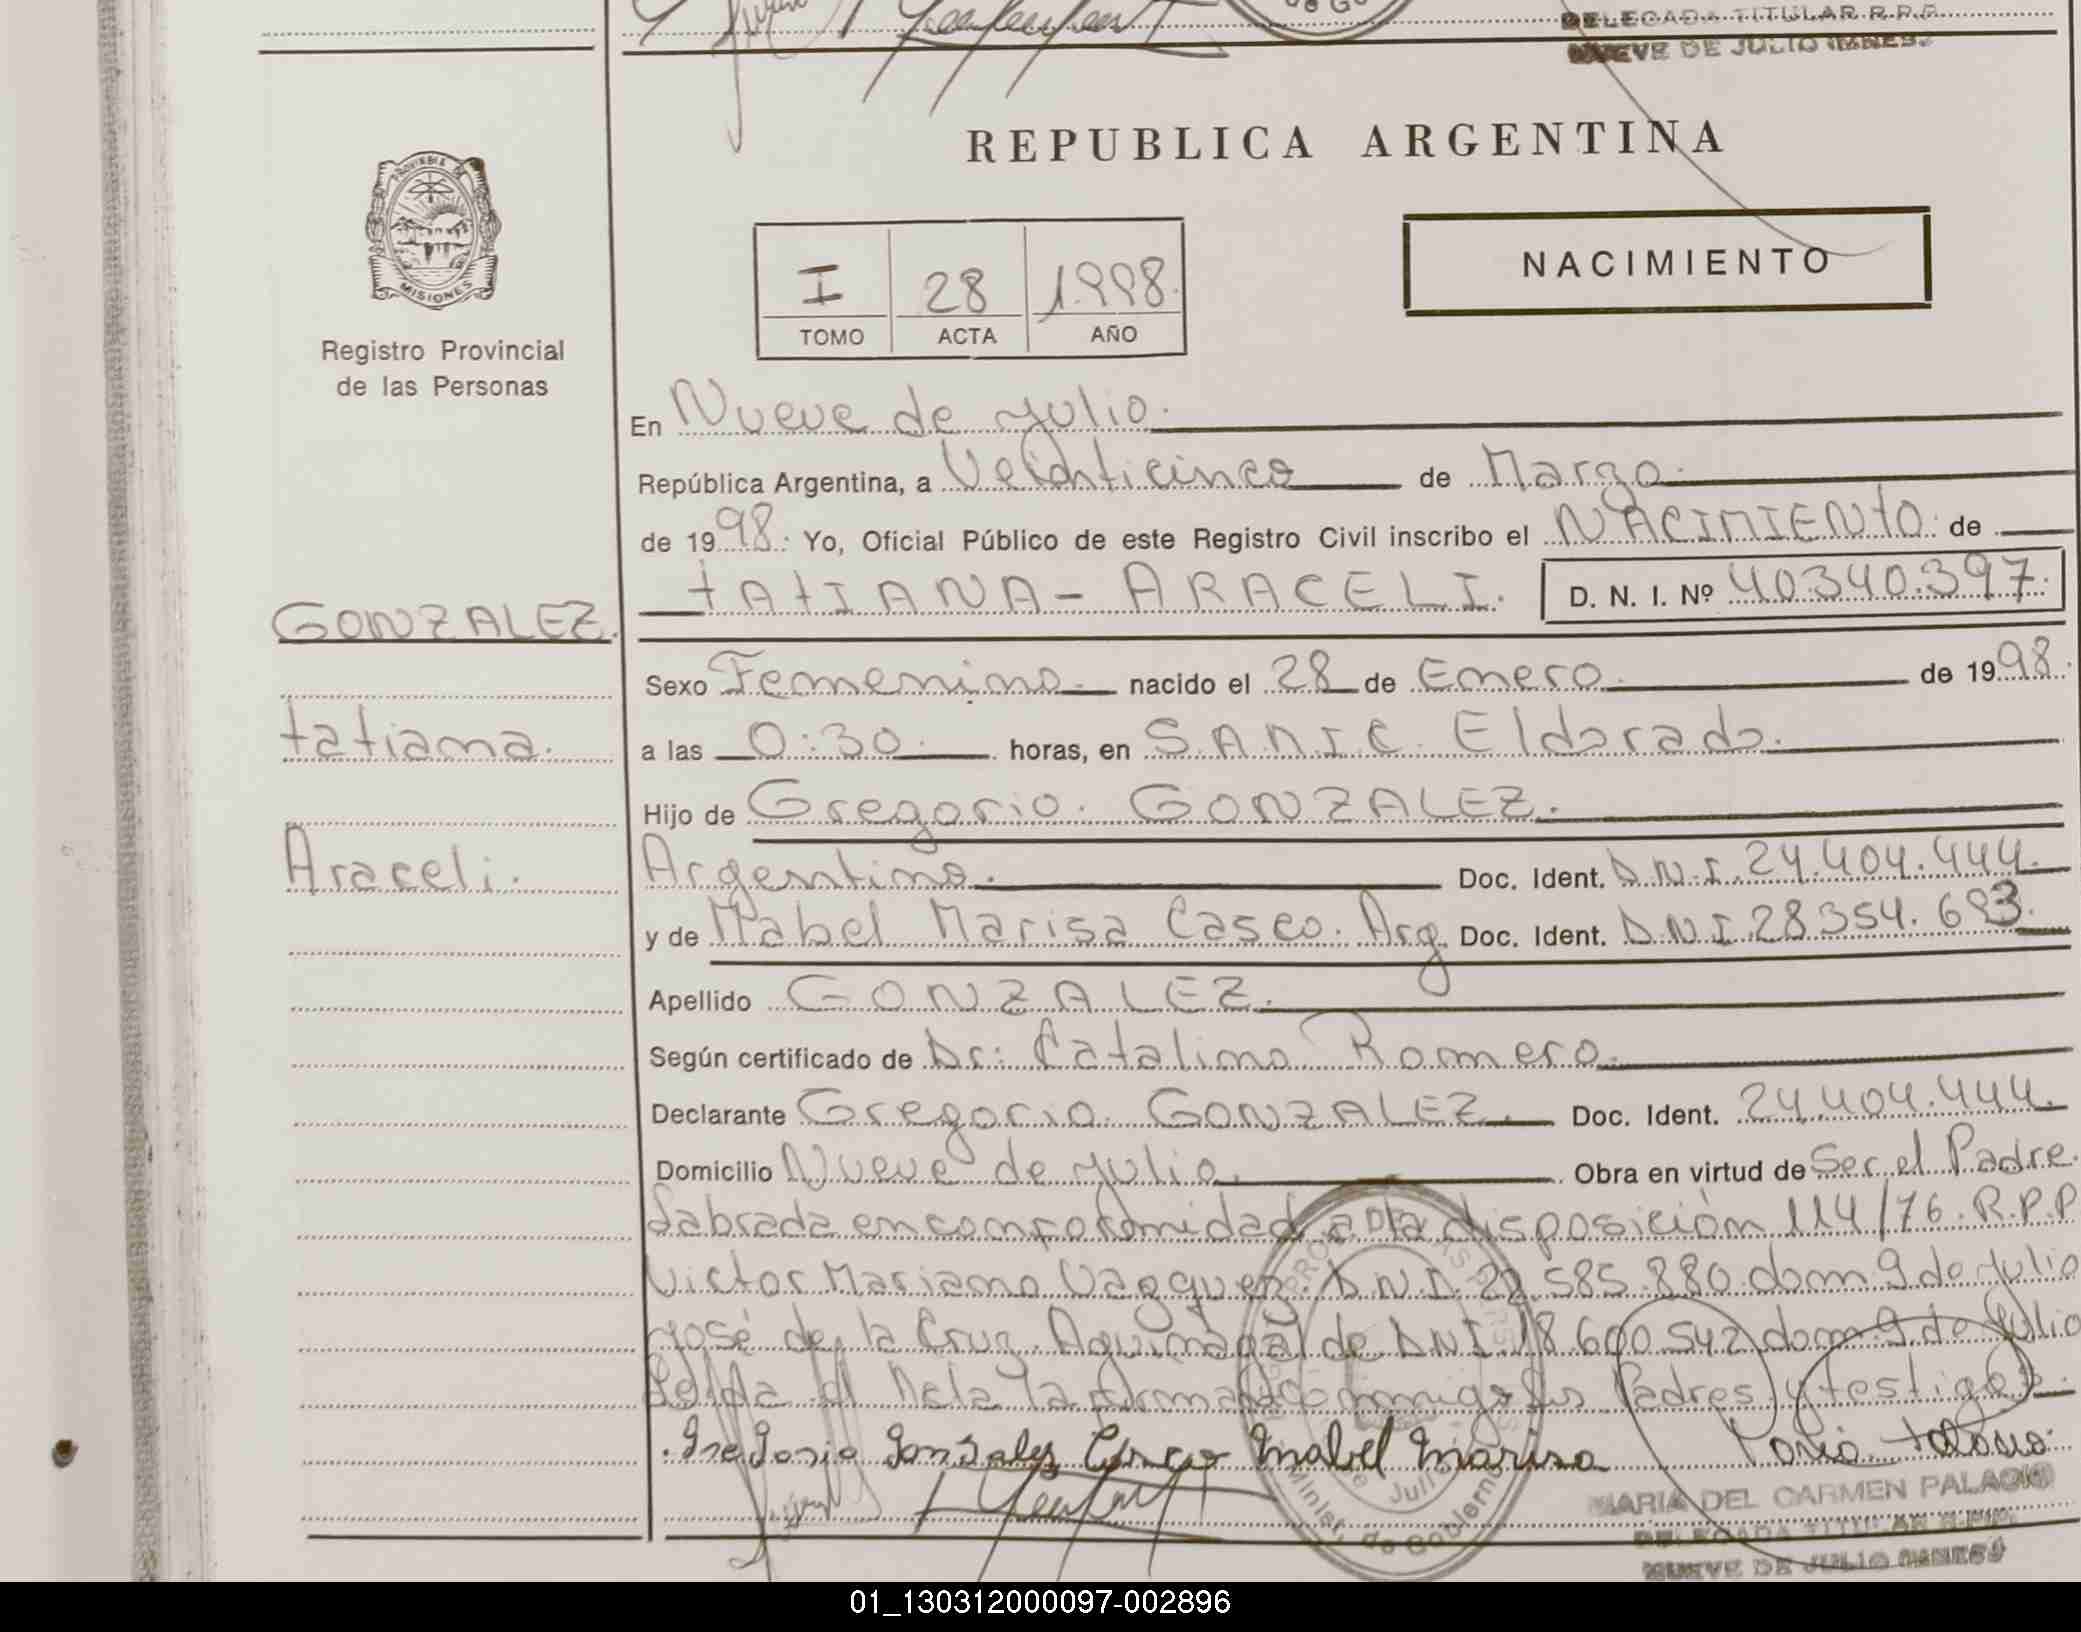 DELEGADA TITULAR R.P.P.
NUEVE DE JULIO (MNES)
REPUBLICA ARGENTINA
PROVINCIA
MISIONES
Registro Provincial
de las Personas
I 28 1998.
TOMO ACTA AÑO
NACIMIENTO
En Nueve de Julio.
República Argentina, a Veinticinco de Marzo.
de 1998. Yo, Oficial Público de este Registro Civil inscribo el NACIMIENTO de
GONZALEZ. tATIANA - ARACELI. D. N. I. Nº 40.340.397.
Sexo Femenino. nacido el 28 de Enero. de 1998.
tatiana. a las 0:30. horas, en S.A.M.I.C. Eldorado.
Hijo de Gregorio. GONZALEZ.
Araceli. Argentino. Doc. Ident. D.N.I. 24.404.444.
y de Mabel Marisa Casco. Arg. Doc. Ident. D.N.I. 28354.693.
Apellido GONZALEZ.
Según certificado de Dr: Catalino Romero.
Declarante Gregorio. GONZALEZ. Doc. Ident. 24.404.444.
Domicilio Nueve de Julio. Obra en virtud de Ser el Padre.
Labrada en conformidad a la disposición 114/76. R.P.P
Victor Mariano D.N.I. 22.585.880. dom 9 de Julio
José de la Cruz de D.N.I. 18.600.542 dom. 9 de Julio
Leida el Acta la conmigo sus Padres y testigos.
Gregorio Gonzalez Casco Mabel Marisa
MARIA DEL CARMEN PALACIO
DELEGADA TITULAR R.P.P.
NUEVE DE JULIO (MNES)
Minist. de Gobierno
01_130312000097-002896